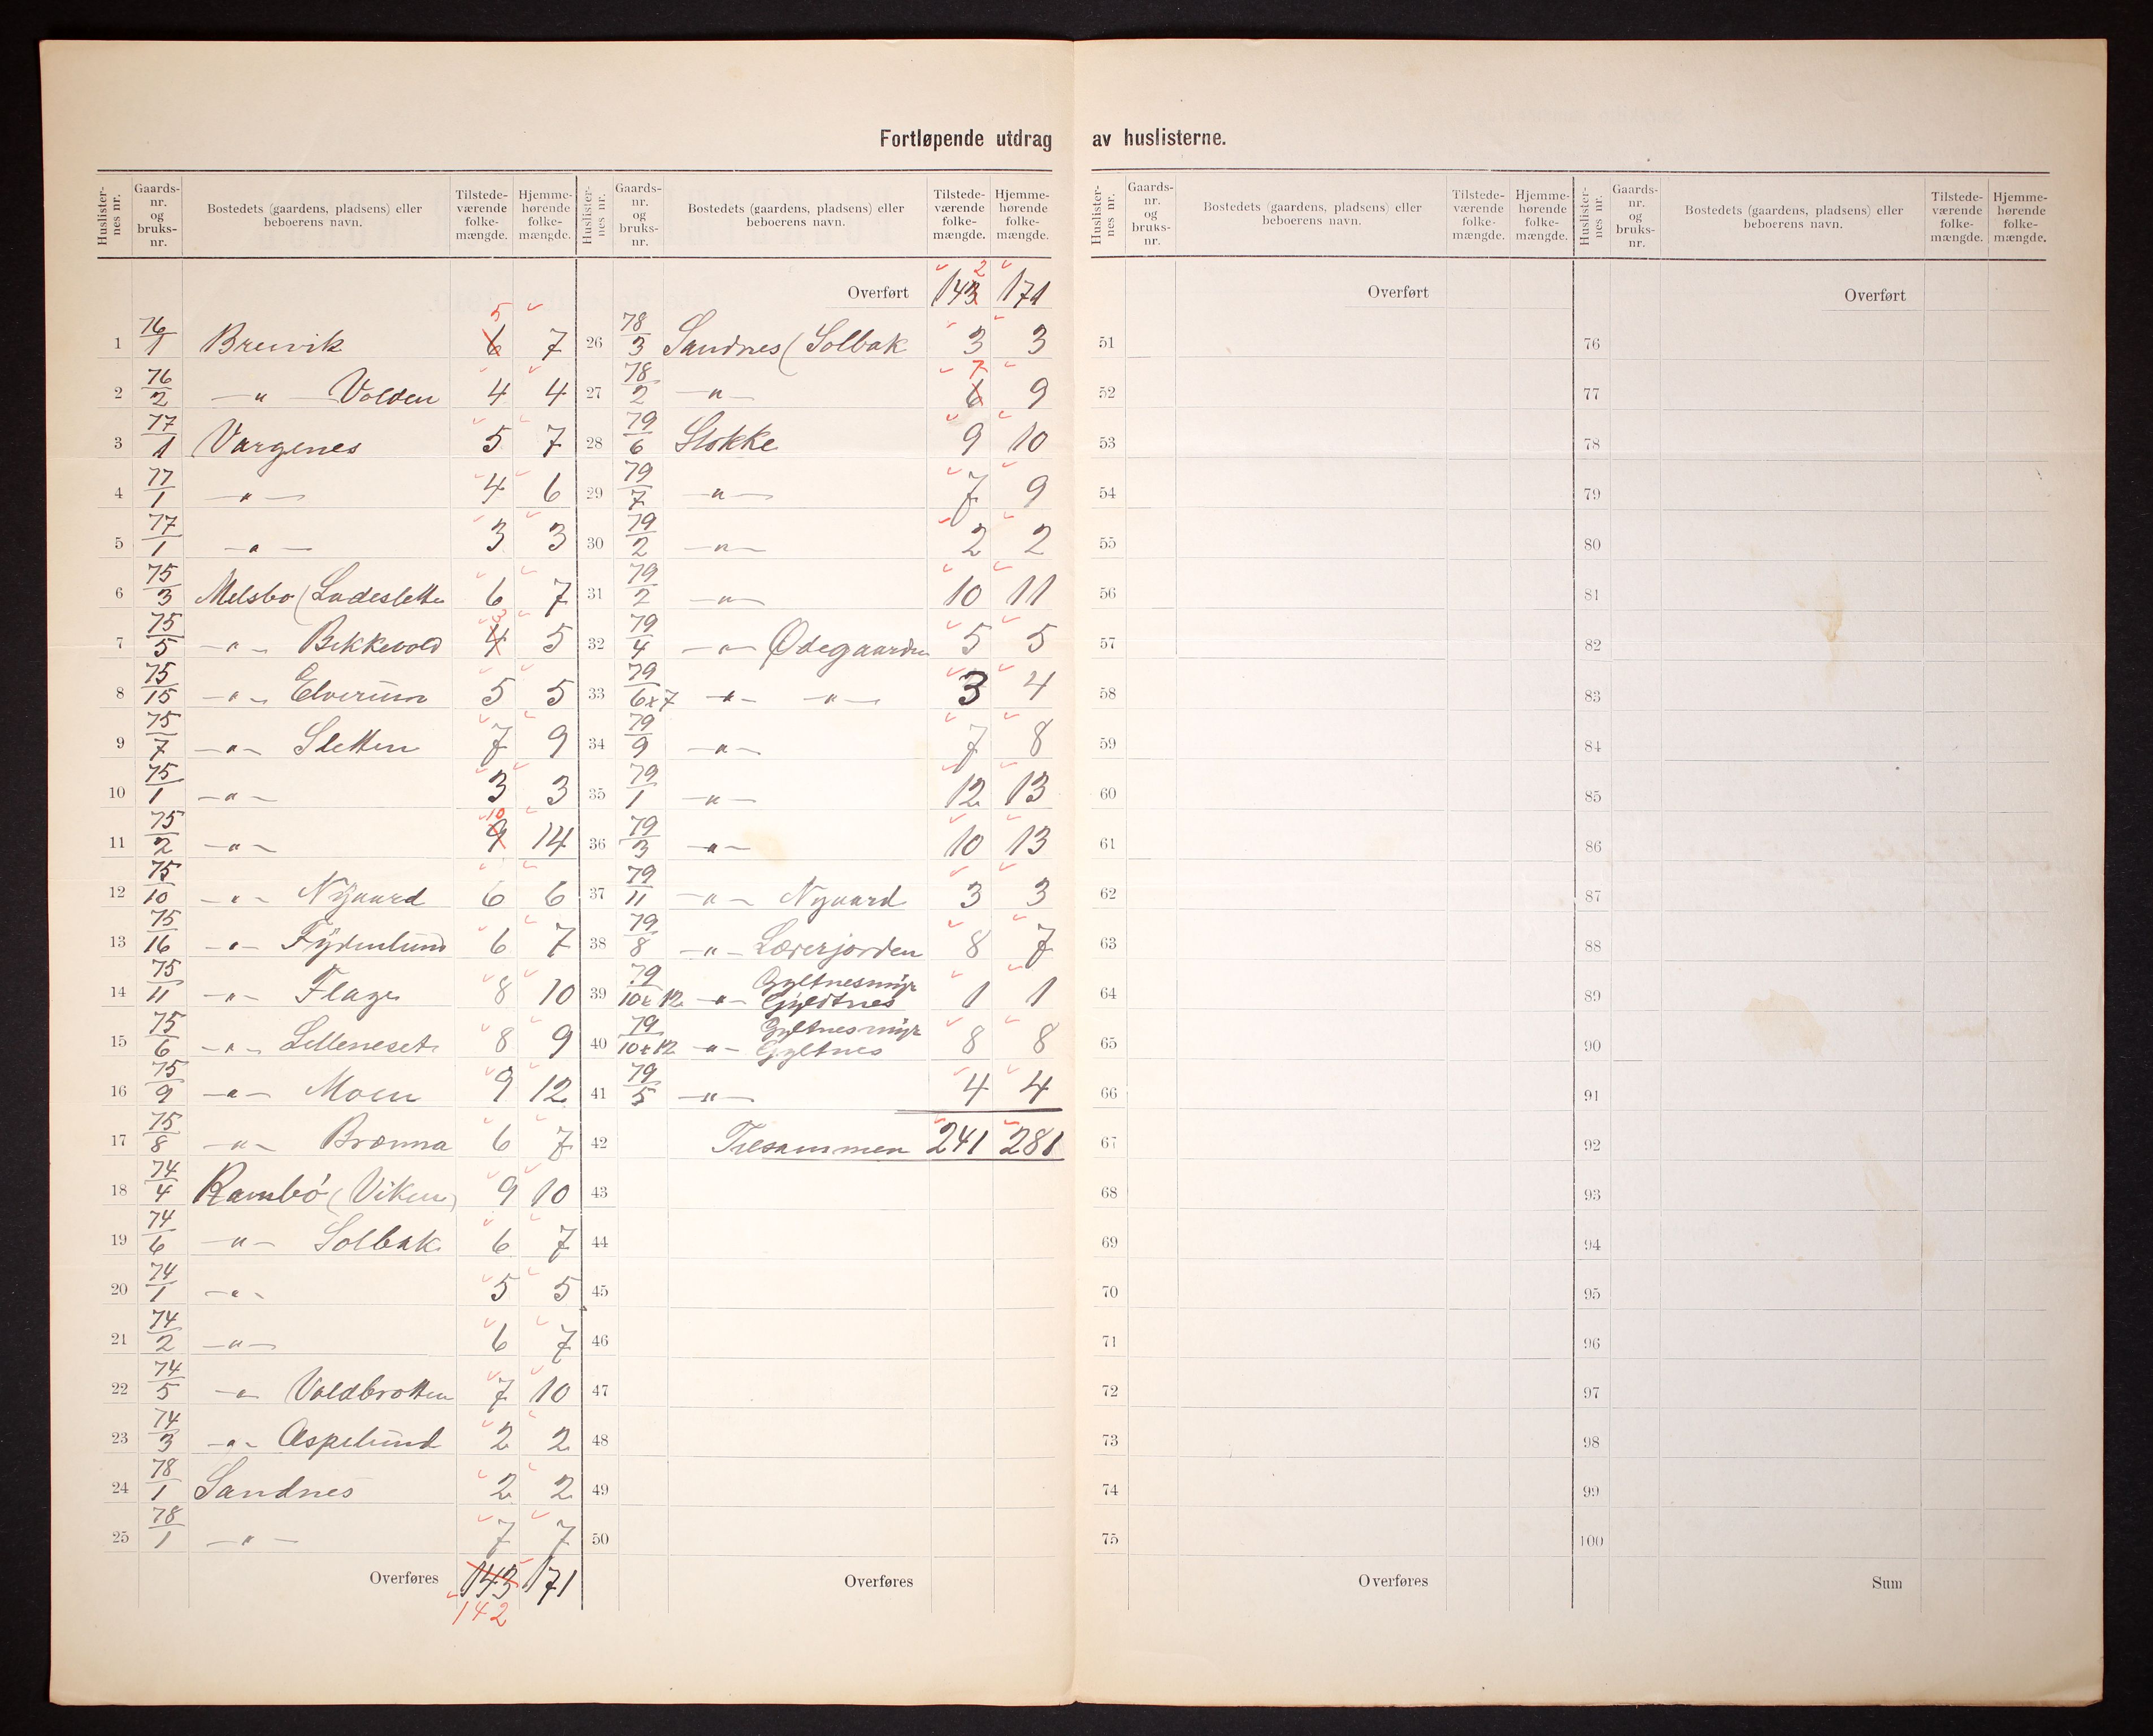 Fortløpende utdrag av huslisterne.
Huslisternes nr. | Gaards-nr. og bruks-nr. | Bostedets (gaardens, pladsens) eller beboerens navn. | Tilstede-værende folke-mængde. | Hjemme-hørende folke-mængde.
1 76/1 Brevik 6 5 7
2 76/2 —"— Volden 4 4
3 77/1 Vargenes 5 7
4 77/1 —"— 4 6
5 77/1 —"— 3 3
6 75/3 Melsbo (Ladesletta 6 7
7 75/5 —"— Bekkevold 4 3 5
8 75/15 —"— Elverum 5 5
9 75/7 —"— Sletten 7 9
10 75/1 —"— 3 3
11 75/2 —"— 9 10 14
12 75/10 —"— Nÿgaard 6 6
13 75/16 —"— Frÿdenlund 6 7
14 75/11 —"— Flage 8 10
15 75/6 —"— Lilleneset 8 9
16 75/9 —"— Moen 9 12
17 75/8 —"— Brænna 6 7
18 74/4 Rambø (Viken) 9 10
19 74/6 —"— Solbak 6 7
20 74/1 —"— 5 5
21 74/2 —"— 6 7
22 74/5 —"— Voldbrotten 7 10
23 74/3 —"— Aspelund 2 2
24 78/1 Sandnes 2 2
25 78/1 —"— 7 7
Overføres 143 171
142
Huslisternes nr. | Gaards-nr. og bruks-nr. | Bostedets (gaardens, pladsens) eller beboerens navn. | Tilstede-værende folke-mængde. | Hjemme-hørende folke-mængde.
Overført 143 2 171
26 78/3 Sandnes (Solbak 3 3
27 78/2 —"— 6 7 9
28 79/6 Stokke 9 10
29 79/7 —"— 7 9
30 79/2 —"— 2 2
31 79/2 —"— 10 11
32 79/4 —"— Ødegaarden 5 5
33 79/6x7 —"— —"— 3 4
34 79/9 —"— 7 8
35 79/1 —"— 12 13
36 79/3 —"— 10 13
37 79/11 —"— Nygaard 3 3
38 79/8 —"— Lærerjorden 8 7
39 79/10t12 —"— Gyltnesmyr Gyldtnes 1 1
40 79/10t12 —"— Gyltnesmyr Gyltnes 8 8
41 79/5 —"— 4 4
42 Tilsammen 241 281
43
44
45
46
47
48
49
50
Overføres
Huslisternes nr. | Gaards-nr. og bruks-nr. | Bostedets (gaardens, pladsens) eller beboerens navn. | Tilstede-værende folke-mængde. | Hjemme-hørende folke-mængde.
Overført
51
52
53
54
55
56
57
58
59
60
61
62
63
64
65
66
67
68
69
70
71
72
73
74
75
Overføres
Huslisternes nr. | Gaards-nr. og bruks-nr. | Bostedets (gaardens, pladsens) eller beboerens navn. | Tilstede-værende folke-mængde. | Hjemme-hørende folke-mængde.
Overført
76
77
78
79
80
81
82
83
84
85
86
87
88
89
90
91
92
93
94
95
96
97
98
99
100
Sum